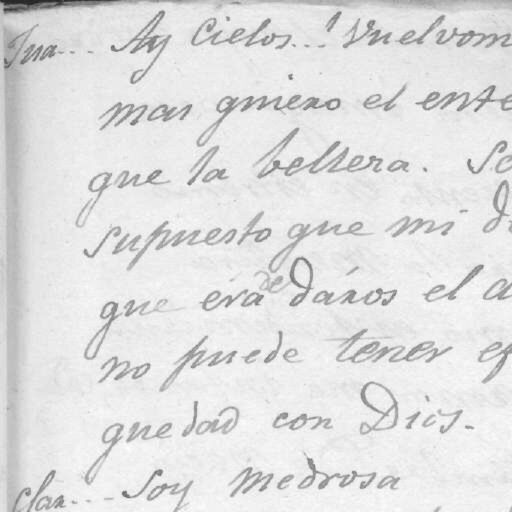 Jua... Ay Cielos...! Vuelvom
mas quiero el ente
que la bellera. Se
supuesto que mi di
que era de dáros el a
no puede tener ef
quedad con Dios.
Clar... Soy medrosa